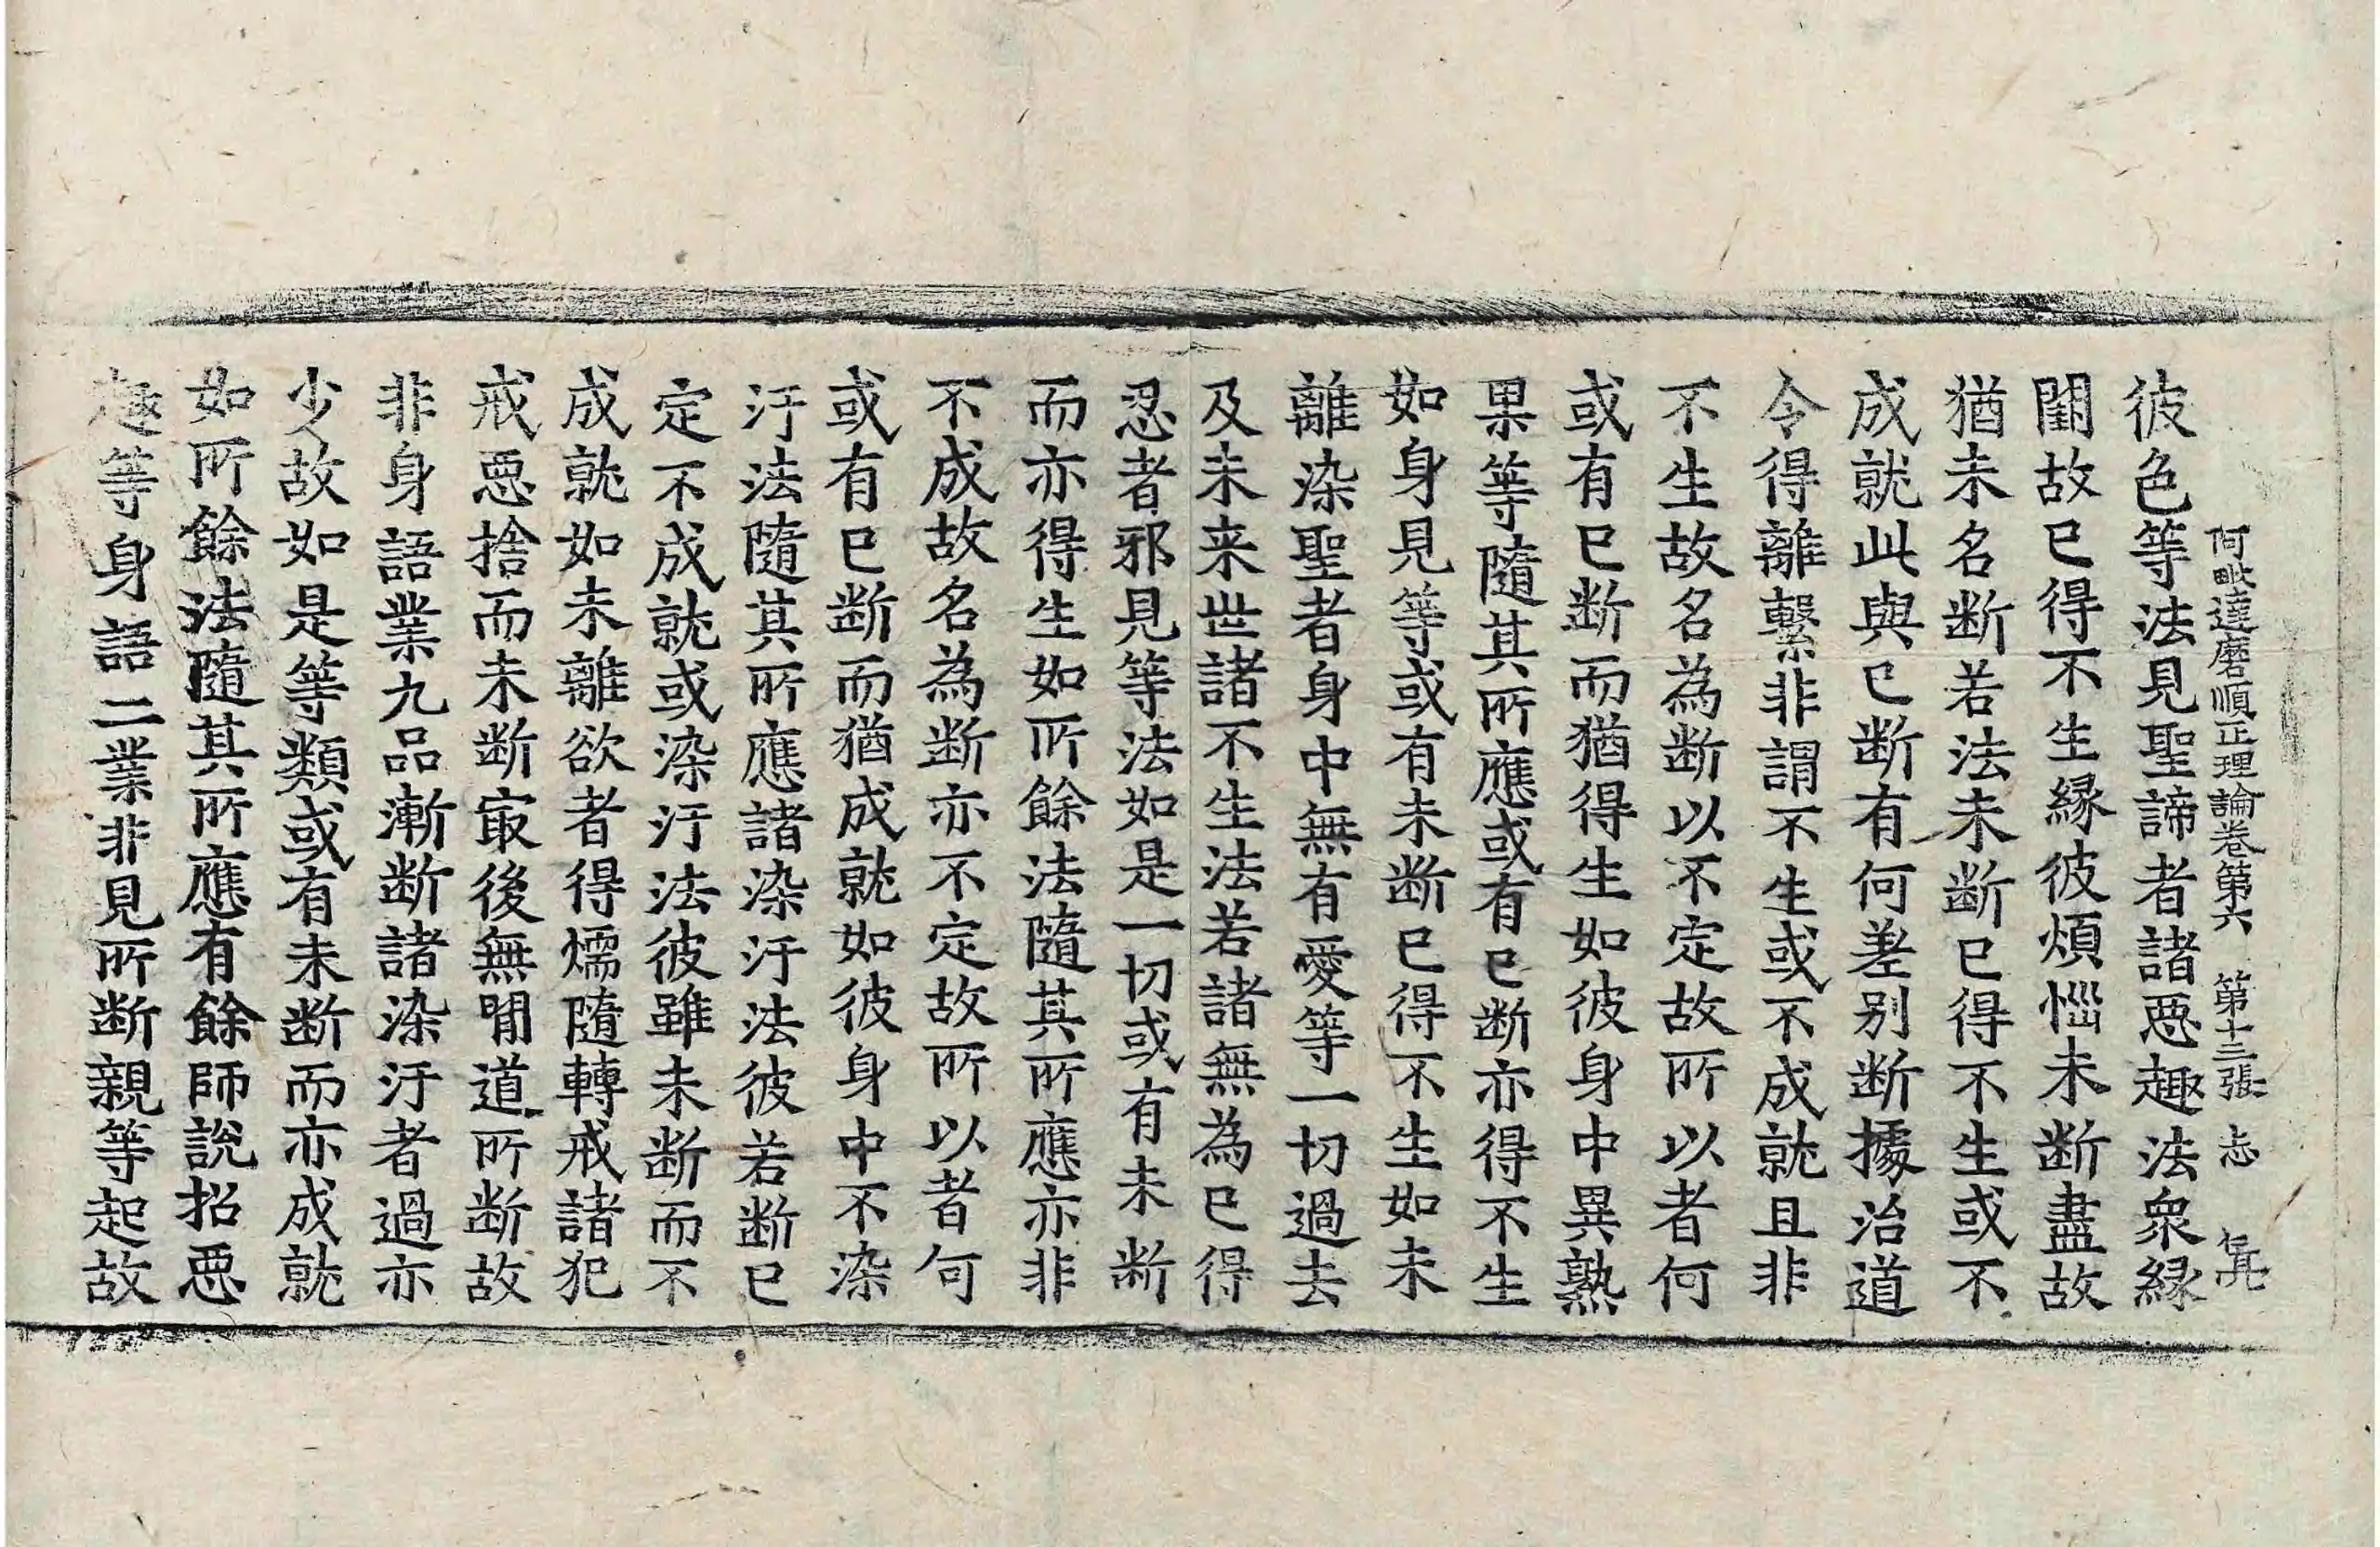 阿毗達磨順正理論卷第六 第十三張 志
彼色等法見聖諦者諸惡趣法衆緣
闕故已得不生緣彼煩惱未断盡故
猶未名断若法未断已得不生或不
成就此與已断有何差别断據治道
令得離繫非謂不生或不成就且非
不生故名為断以不定故所以者何
或有已断而猶得生如彼身中異熟
果等隨其所應或有已断亦得不生
如身見等或有未断已得不生如未
離染聖者身中無有愛等一切過去
及未来世諸不生法若諸無為已得
忍者邪見等法如是一切或有未断
而亦得生如所餘法隨其所應亦非
不成故名為断亦不定故所以者何
或有已断而猶成就如彼身中不染
汙法隨其所應諸染汙法彼若断已
定不成就或染汙法彼雖未断而不
成就如未離欲者得燸隨轉戒諸犯
戒惡捨而未断㝡後無閒道所断故
非身語業九品漸断諸染汙者過亦
少故如是等類或有未断而亦成就
如所餘法隨其所應有餘師說招惡
趣等身語二業非見所断親等起故